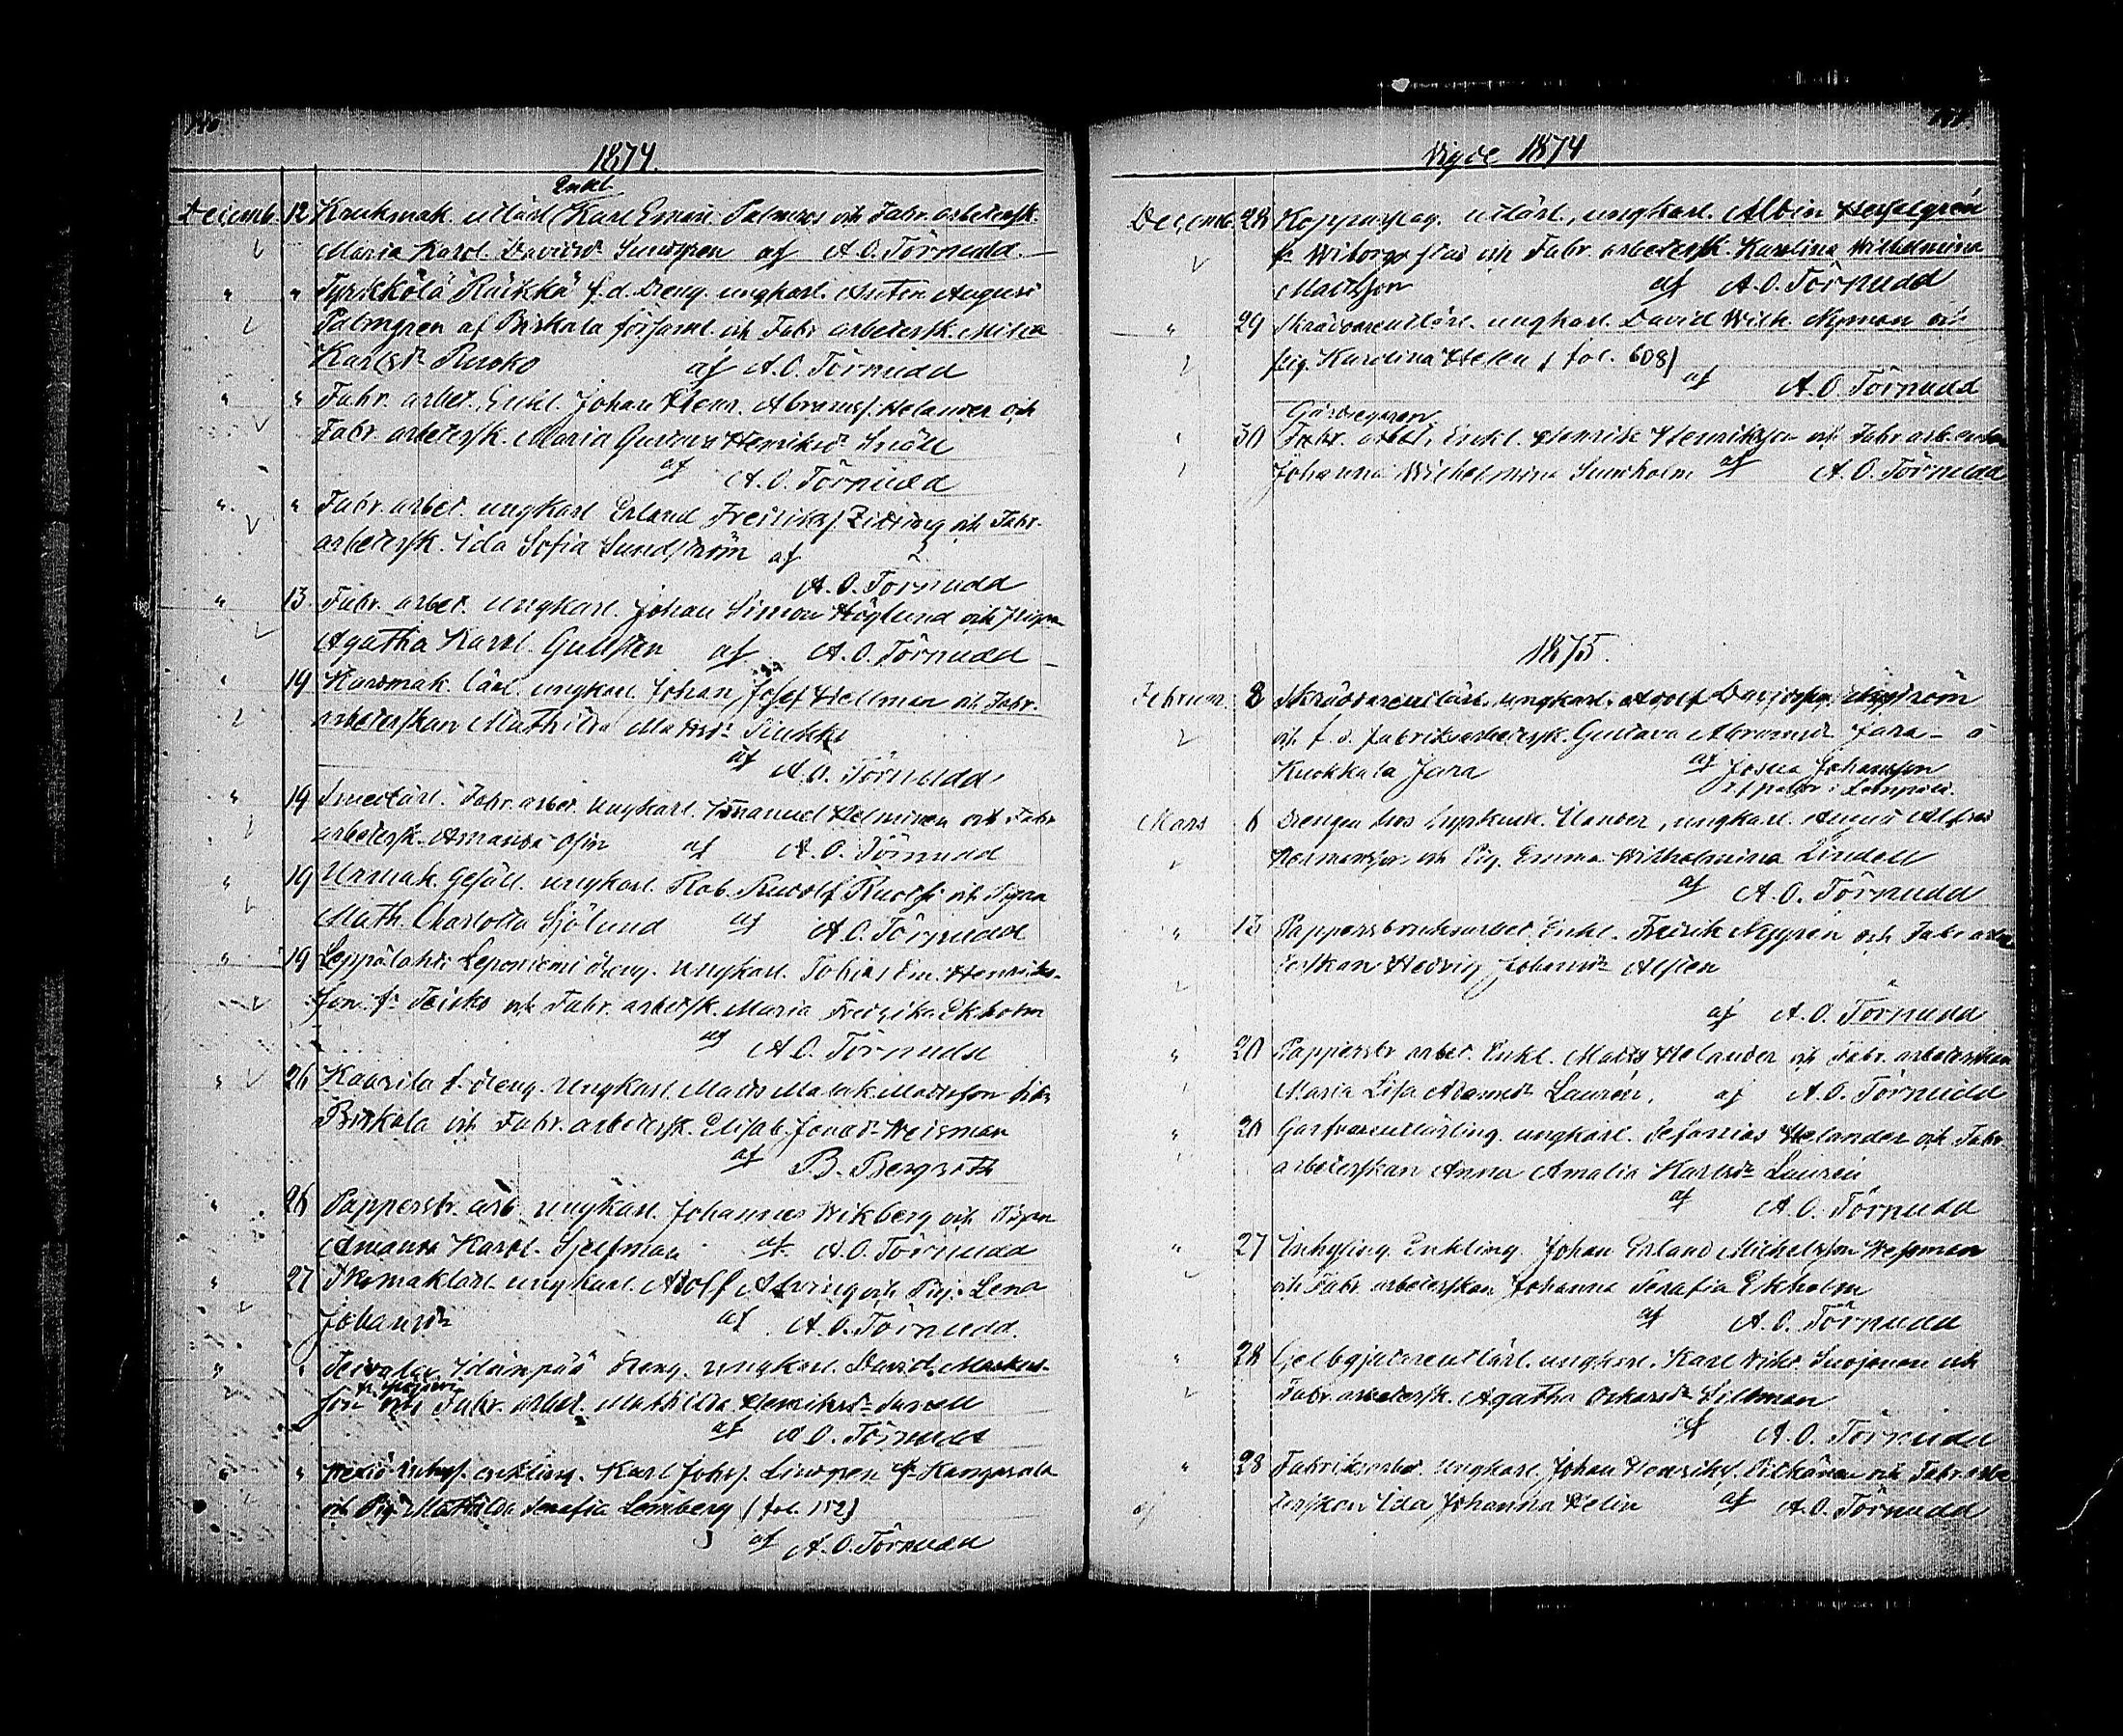 140.
1874.
Enkl.
Decemb. 12 Krukmak. utlärl. Karl Eman. Palmros och Fabr. arbetersk.
Maria Karol. Davidsdr Sundgren af A. O. Törnudd.
" " Tyrkkölä Räikkä f.d. Dreng. ungkarl. Anton August
Palmgren af Birkala församl. och Fabr arbetersk. Milia
Karlsdr Rusko af A. O. Törnudd
" " Fabr. arbet. Enkl. Johan Henr. Abramss. Helander och
Fabr arbetersk. Maria Gustava Henriksdr Snäll
af A. O. Törnudd
" " Fabr. arbet. ungkarl Erland Fredriks. Ziding och Fabr.
arbetersk. Ida Sofia Sundström af
A. O. Törnudd
" 13. Fabr. arbet. ungkarl. Johan Simon Höglund och Pigan
Agatha Karol. Gullsten af A. O. Törnudd
" 19 mak. lärl. ungkarl Johan Josef Hellman och Fabr.
arbeterskan Mathilda Mattsdr
af A. O. Törnudd
" 19 Fabr. arbet. ungkarl. Emanuel Helminen och Fabr
arbetersk. Amanda af A. O. Törnudd
" 19 Urmak. Gesäll. ungkarl. Rob. Rudolf och Pigan
Math. Charlotta Sjölund af A. O. Törnudd
" 19 Leppälahti Leponiemi dreng. ungkarl. Tobias Em. Henriks-
son fr Teisko och Fabr. arbetersk. Maria Fredrika Ekholm
af A. O. Törnudd
" 26 Kaarila f. dreng. Ungkarl. Matts Malak. Mattsson från
Birkala och Fabr. arbetersk. Elisab. Jonaedr Weisman
af B. Bergroth
" 26 Papperbr. arb. ungkarl. Johannes Wikberg och Pigan
Amanda Karol. Sjelfman af A. O. Törnudd
" 27 Skomaklärl. ungkarl. Adolf Alving och Pig. Lena
Johansdr af A. O. Törnudd.
" " Ylämpää dreng. ungkarl. David. Markus-
son och Fabr. arbet. Mathilda Henriksdr
af A. O. Törnudd
" " enkling. Karl Johs. Lindgren fr Kangasala
och Pig. Mathilda Serafia Lemberg (fol. 152)
af A. O. Törnudd
141.
Vigde 1874
Decemb. 28 Kopparslag. utlärl., ungkarl. Albin Hesselgrén
fr Wiborgs stad och Fabr. arbetersk. Karolina Wilhelmina
Mattsson af A. O. Törnudd
" 29 Skräddareutlärl. ungkarl. David Wilh. Nyman och
pig. Karolina Helen (fol. 608)
af A. O. Törnudd
Gårdsegaren
" 30 Fabr. arbet. Enkl. Henrik Henriksson och Fabr. arb. enkan
Johanna Wilhelmina Sundholm af A. O. Törnudd
1875.
Februar. 8 Skräddareutlärl. ungkarl. Adolf Davidsson
och f. d. fabriksarbetersk. Gustava Abramsdr Jara å
Kuokkala Jara af Josua Johansson
i Lempäälä.
Mars 6 Drengen hos ungkarl. Alfred
Hermansson och Pig. Emma Wilhelmina Lindell
af A. O. Törnudd
" 13 Pappersbruksarbet. Enkl. Fredrik Nygrén och Fabr arbe
terskan Hedvig Johansdr Alsten
af A. O. Törnudd
" 20 Pappersbr arbet. Enkl. Matts Helander och Fabr. arbeterskan
Maria Lisa Adamsdr Laurén, af A. O. Törnudd
" 20 Garfvareutlärling. ungkarl. Sefanias Helander och Fabr.
arbeterskan Anna Amalia Karlsdr Laurén
af A. O. Törnudd
" 27 Inhysling. Enkling. Johan Erland Michelsson Wessman
och Fabr. arbeterskan Johanna Serafia Ekholm
af A. O. Törnudd
" 28 Gelbgjutareutlärl. ungkarl. Karl Vikt. Suojonen och
Fabr. arbetersk. Agatha Oskarsdr Sillman
af A. O. Törnudd
" 28 Fabriksarbet. Ungkarl. Johan Henrikss. Pitkänen och Fabr. arbe
terskan Ida Johanna Helin af A. O. Törnudd